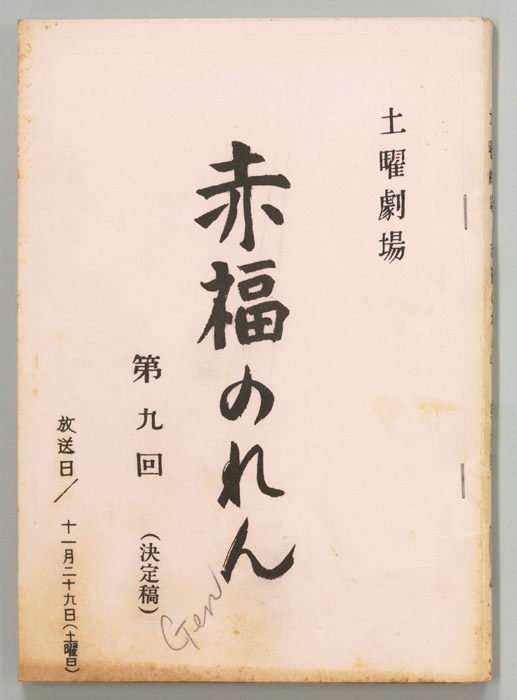 土曜劇場
赤福のれん
第九回
(決定稿)
Gen
放送日/十一月二十九日(土曜日)